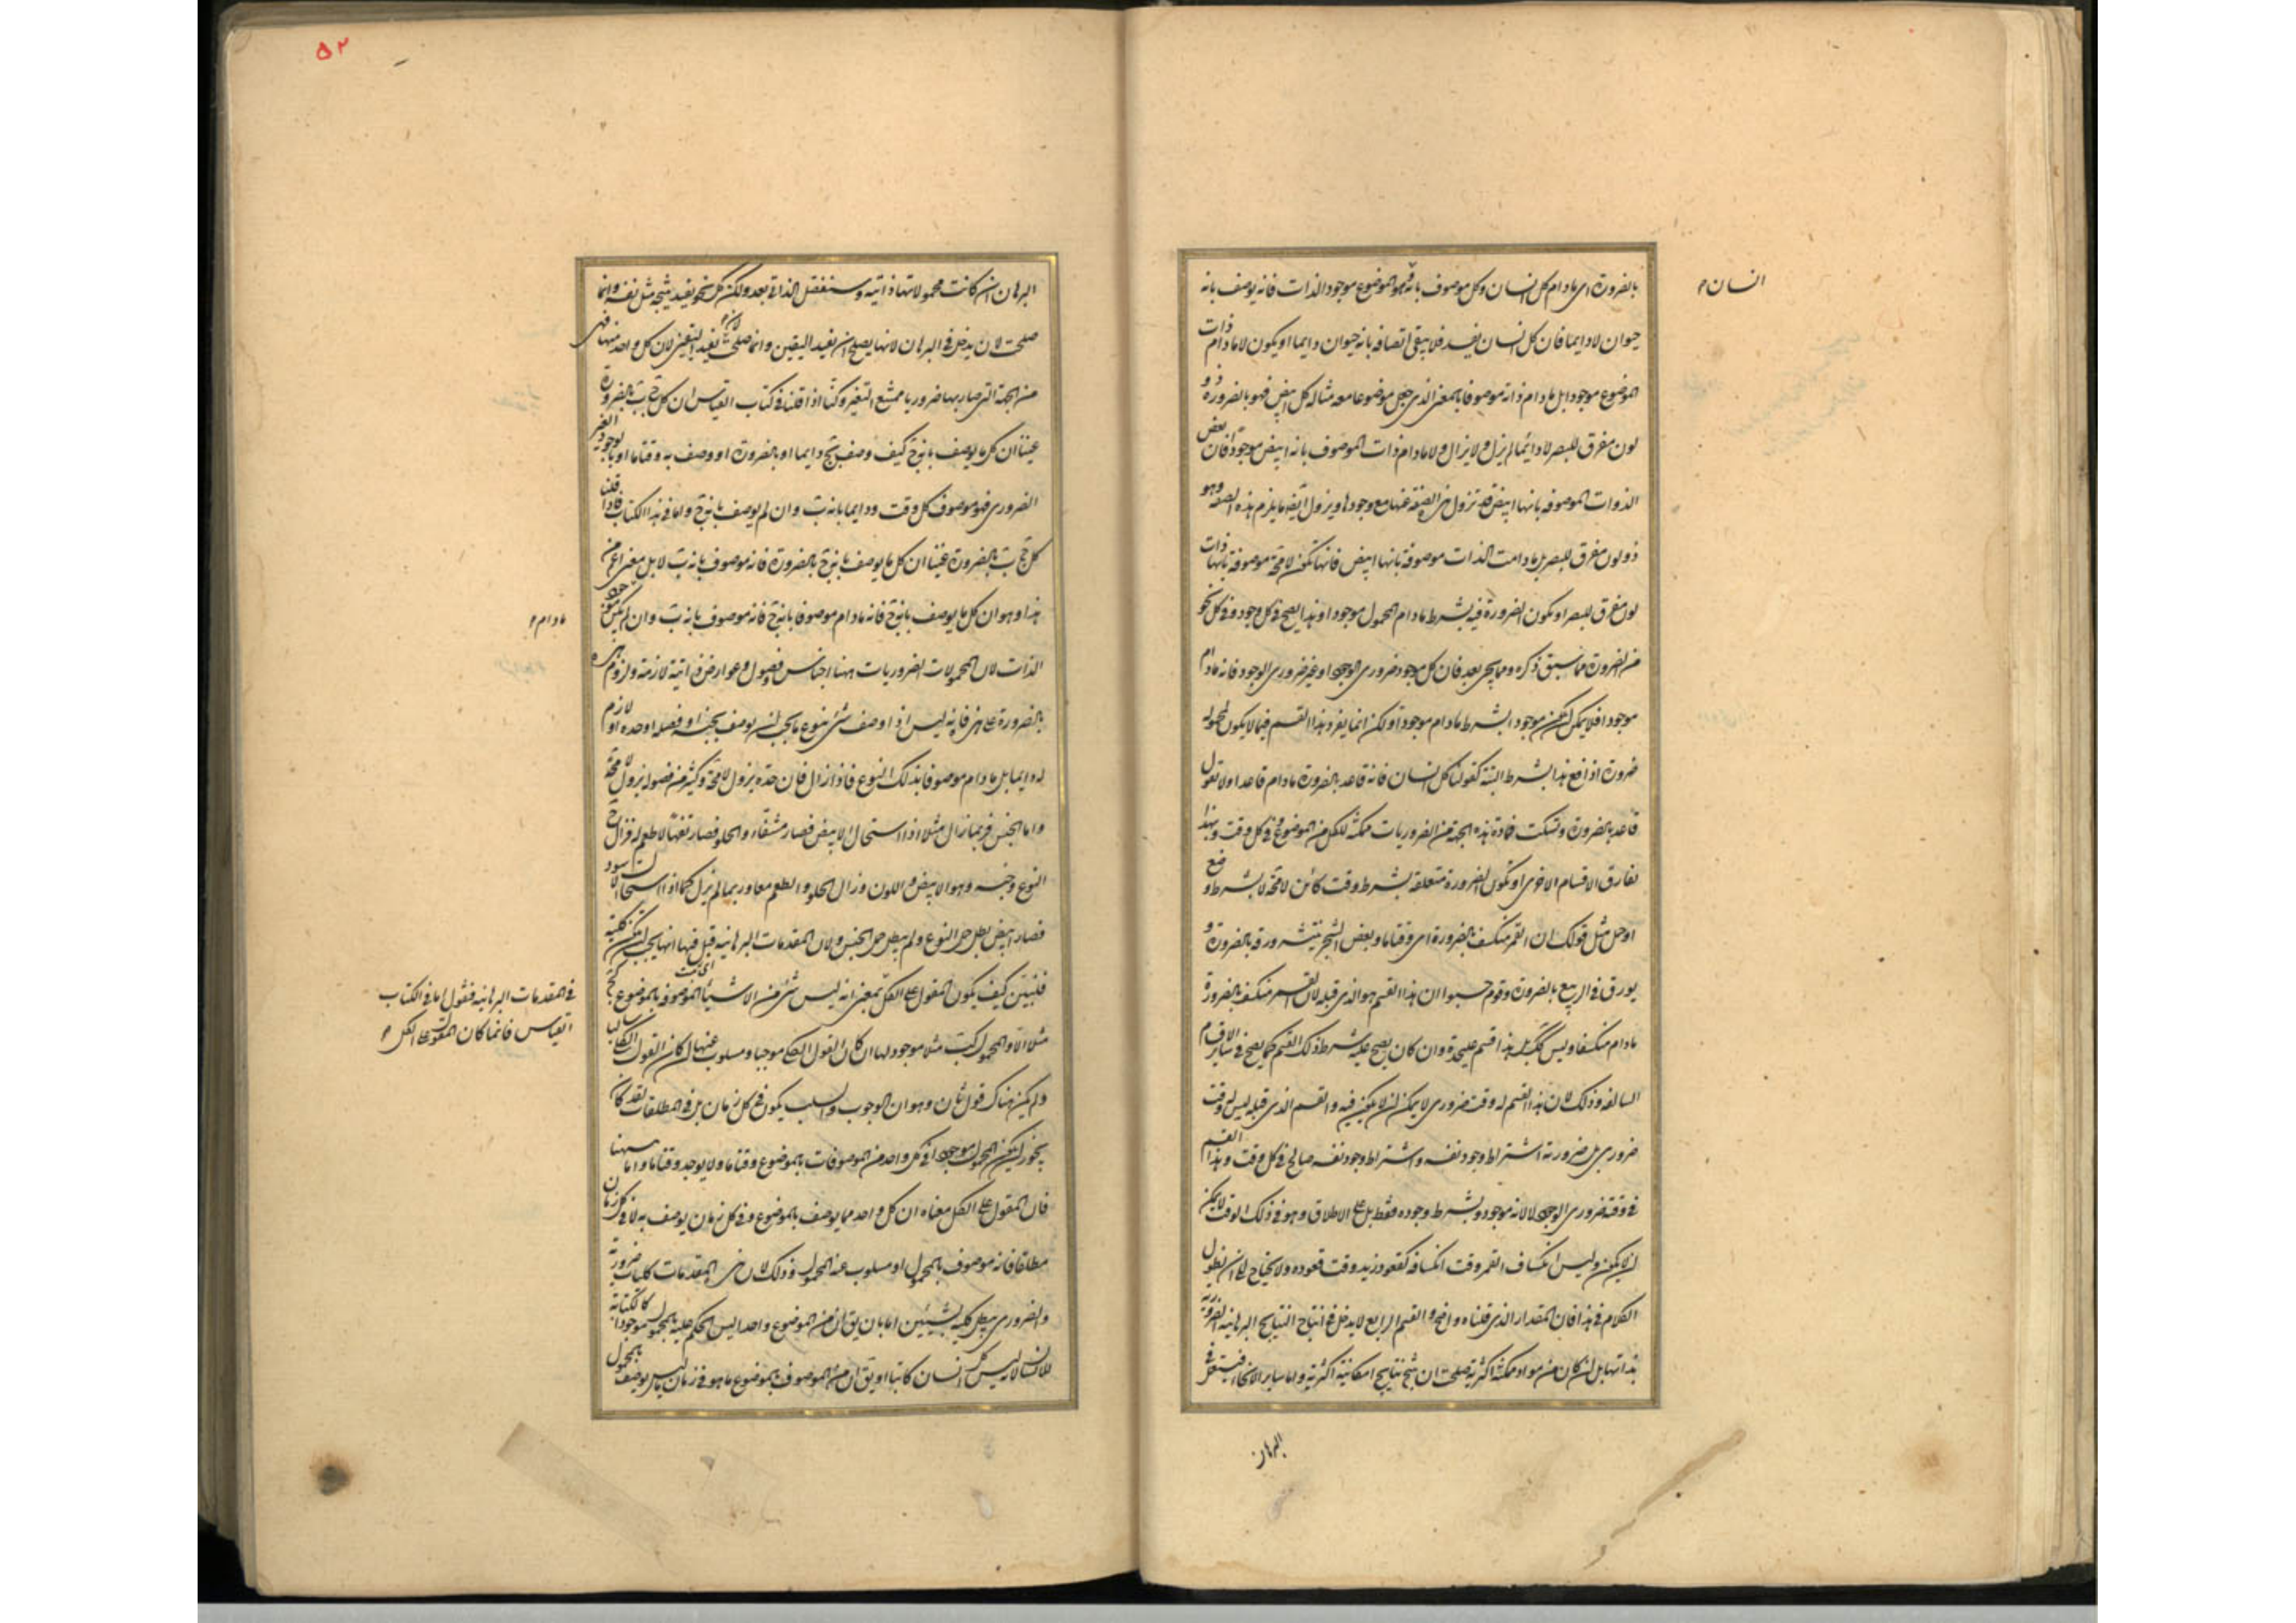 بالضرورة اى مادام كل انسان وكل موصوف بانه فهو الموضوع موجود الذات فانه يوصف بانه
انسان
حيوان لا دايما فان كل انسان يفسد فلا يبقى اتصافه بانه حيوان دايما او يكون لا مادام ذات
الموضوع موجودا بل مادام ذاته موصوفا بالمعنى الذى جعل موضوعا معه مثاله كل ابيض فهو بالضرورة ذو
لون مفرق للبصر لا دائما لم يزل ولا يزال ولا مادام ذات الموصوف بانه ابيض موجودا فان بعض
الذوات الموصوفه بانها ابيض قد تزول هذه الصفة عنها مع وجودها ويزول ايضا ما يلزم هذه الصفة وهو
ذو لون مفرق للبصر بل مادامت الذات موصوفة بانها ابيض فانها تكون لا محة موصوفة بانها ذات
لون مفرق للبصر او يكون الضرورة فيه بشرط مادام المحمول موجودا وهذا يصح فى كل وجود وفى كل نحو
من الضرورة مما سبق ذكره ومما يجئ بعد فان كل موجود ضرورى الوجود او غير ضرورى الوجود فانه مادام
موجودا فلا يمكن ان لا يكون موجودا بشرط مادام موجودا ولكن انما يفرد هذا القسم فيما لا يكون لمحموله
ضرورة اذا فع هذا الشرط البتة كقولنا كل انسان فانه قاعد بالضرورة مادام قاعدا ولا تقول
قاعد بالضرورة وتسكت فمادة هذه الجهة من الضروريات ممكنة للكل من الموضوع وفى كل وقت وبهذا
تفارق الاقسام الاخرى او تكون الضرورة متعلقة بشرط وقت كائن لا محة لا بشرط وضع
او حمل مثل قولك ان القمر منكسف بالضرورة اى وقتا ما وبعض الشجر ينتشر ورقه بالضرورة و
يورق فى الربيع بالضرورة وقوم حسبوا ان هذا القسم هو الذى قبله لان القمر منكسف بالضرورة
مادام منكسفا وليس كذلك بل هذا قسم عليحدة وان كان يصح عليه شرط ذلك القسم كما يصح فى ساير الاقسام
السالفة وذلك لان هذا القسم له وقت ضرورى لا يمكن ان لا يكون فيه والقسم الذى قبله ليس له وقت
ضرورى بل ضرورته اشتراط وجود نفسه واشتراط وجود نفسه صالح فى كل وقت وهذا القسم
فى وقته ضرورى الوجود لا لانه موجود وبشرط وجوده فقط بل على الاطلاق وهو فى ذلك الوقت لا يمكن
ان لا يكون وليس انكساف القمر وقت انكسافه كقعود زيد وقت قعوده ولا يحتاج الى ان نطول
الكلام فى هذا فان المقدار الذى قلناه واضح والقسم الرابع لا يدخل فى انتاج النتايج البرهانيه الضرورية
بذاتها بل ان كان من مواد ممكنة اكثرية صلحت ان تنتج نتايج امكانية اكثرية واما ساير الانحاء فيستعمل فى
البرهان
البرهان ان كانت محمولاتها ذاتية وسنفصل الذاتى بعد ولكن كل نحو يفيد نتيجة مثل نفسه وانما
صلحت لان يدخل فى البرهان لانها يصلح ان تفيد اليقين وانما صلحت ان تفيد اليقين لان كل واحد منها فهى
من الجهة التى صار بها ضروريا ممتنع التغير وكنا اذا قلنا فى كتاب القياس ان كل ج ب بالضرورة
عنينا ان كل ما يوصف بانه ج كيف وصف بج دايما او بالضرورة او وصف به وقتا ما او بالوجود الغير
الضرورى فهو موصوف كل وقت ودايما بانه ب وان لم يوصف بانه ج واما فى هذا الكتاب فاذا قلنا
كل ج ب بالضرورة عنينا ان كل ما يوصف بانه ج بالضرورة فانه موصوف بانه ب لا بل معنى اعم من
هذا وهو ان كل ما يوصف بانه ج فانه مادام موصوفا بانه ج فانه موصوف بانه ب وان لم يكن موجود
مادام
الذات لان المحمولات الضروريات ههنا اجناس وفصول وعوارض ذاتية لازمة ولزوم هذه
بالضرورة على هذه فانه ليس اذا وصف شئ بنوع ما يجب ان يوصف بجنسه او فصله او حده او لازم
له دايما بل مادام موصوفا بذلك النوع فاذا زال فان حده يزول لا محة وكثير من فصوله يزول لا محة
واما الجنس فربما زال مثلا اذا استحال الابيض فصار مشفا والحلو فصار تفها لا طعم له فزال ح
النوع وجنسه وهو الابيض واللون وزال الحلو والطعم معا وربما لم يزل كما اذا استحال الاسود
فصار ابيض بطل حمل النوع ولم يبطل حمل الجنس ولان المقدمات البرهانية قيل فيها انها يجب ان تكون كلية
فلنبين كيف يكون المقول على الكل بمعنى انه ليس شئ من الاشياء الموصوفة بالموضوع كج
فى المقدمات البرهانيه فنقول اما فى الكتاب
القياس فانما كان المقول على الكل
مثلا الا والمحمول كب مثلا موجود لها ان كان القول الكلى موجبا ومسلوب عنها ان كان القول الكلى سالبا
ولم يكن هناك قول ثان وهو ان الوجوب والسلب يكون فى كل زمان بل فى المطلقات لقد كان
يجوز ان يكون المحمول موجودا فى كل واحد من الموصوفات بالموضوع وقتا ما ولا يوجد وقتا ما واما ههنا
فان المقول على الكل معناه ان كل واحد مما يوصف بالموضوع وفى كل زمان يوصف به لا فى كل زمان
مطلقا فانه موصوف بالمحمول او مسلوب عنه المحمول وذلك لان هذه المقدمات كليات ضرورة
والضرورى يبطل كليه بشيئين اما بان يق ان من الموضوع واحدا ليس الحكم عليه بالمحمول موجودا كالكتابة
للانسان لانه ليس كل انسان كاتبا او يق ان من الموصوف بالموضوع ما هو فى زمان ما ليس يوصف بالمحمول